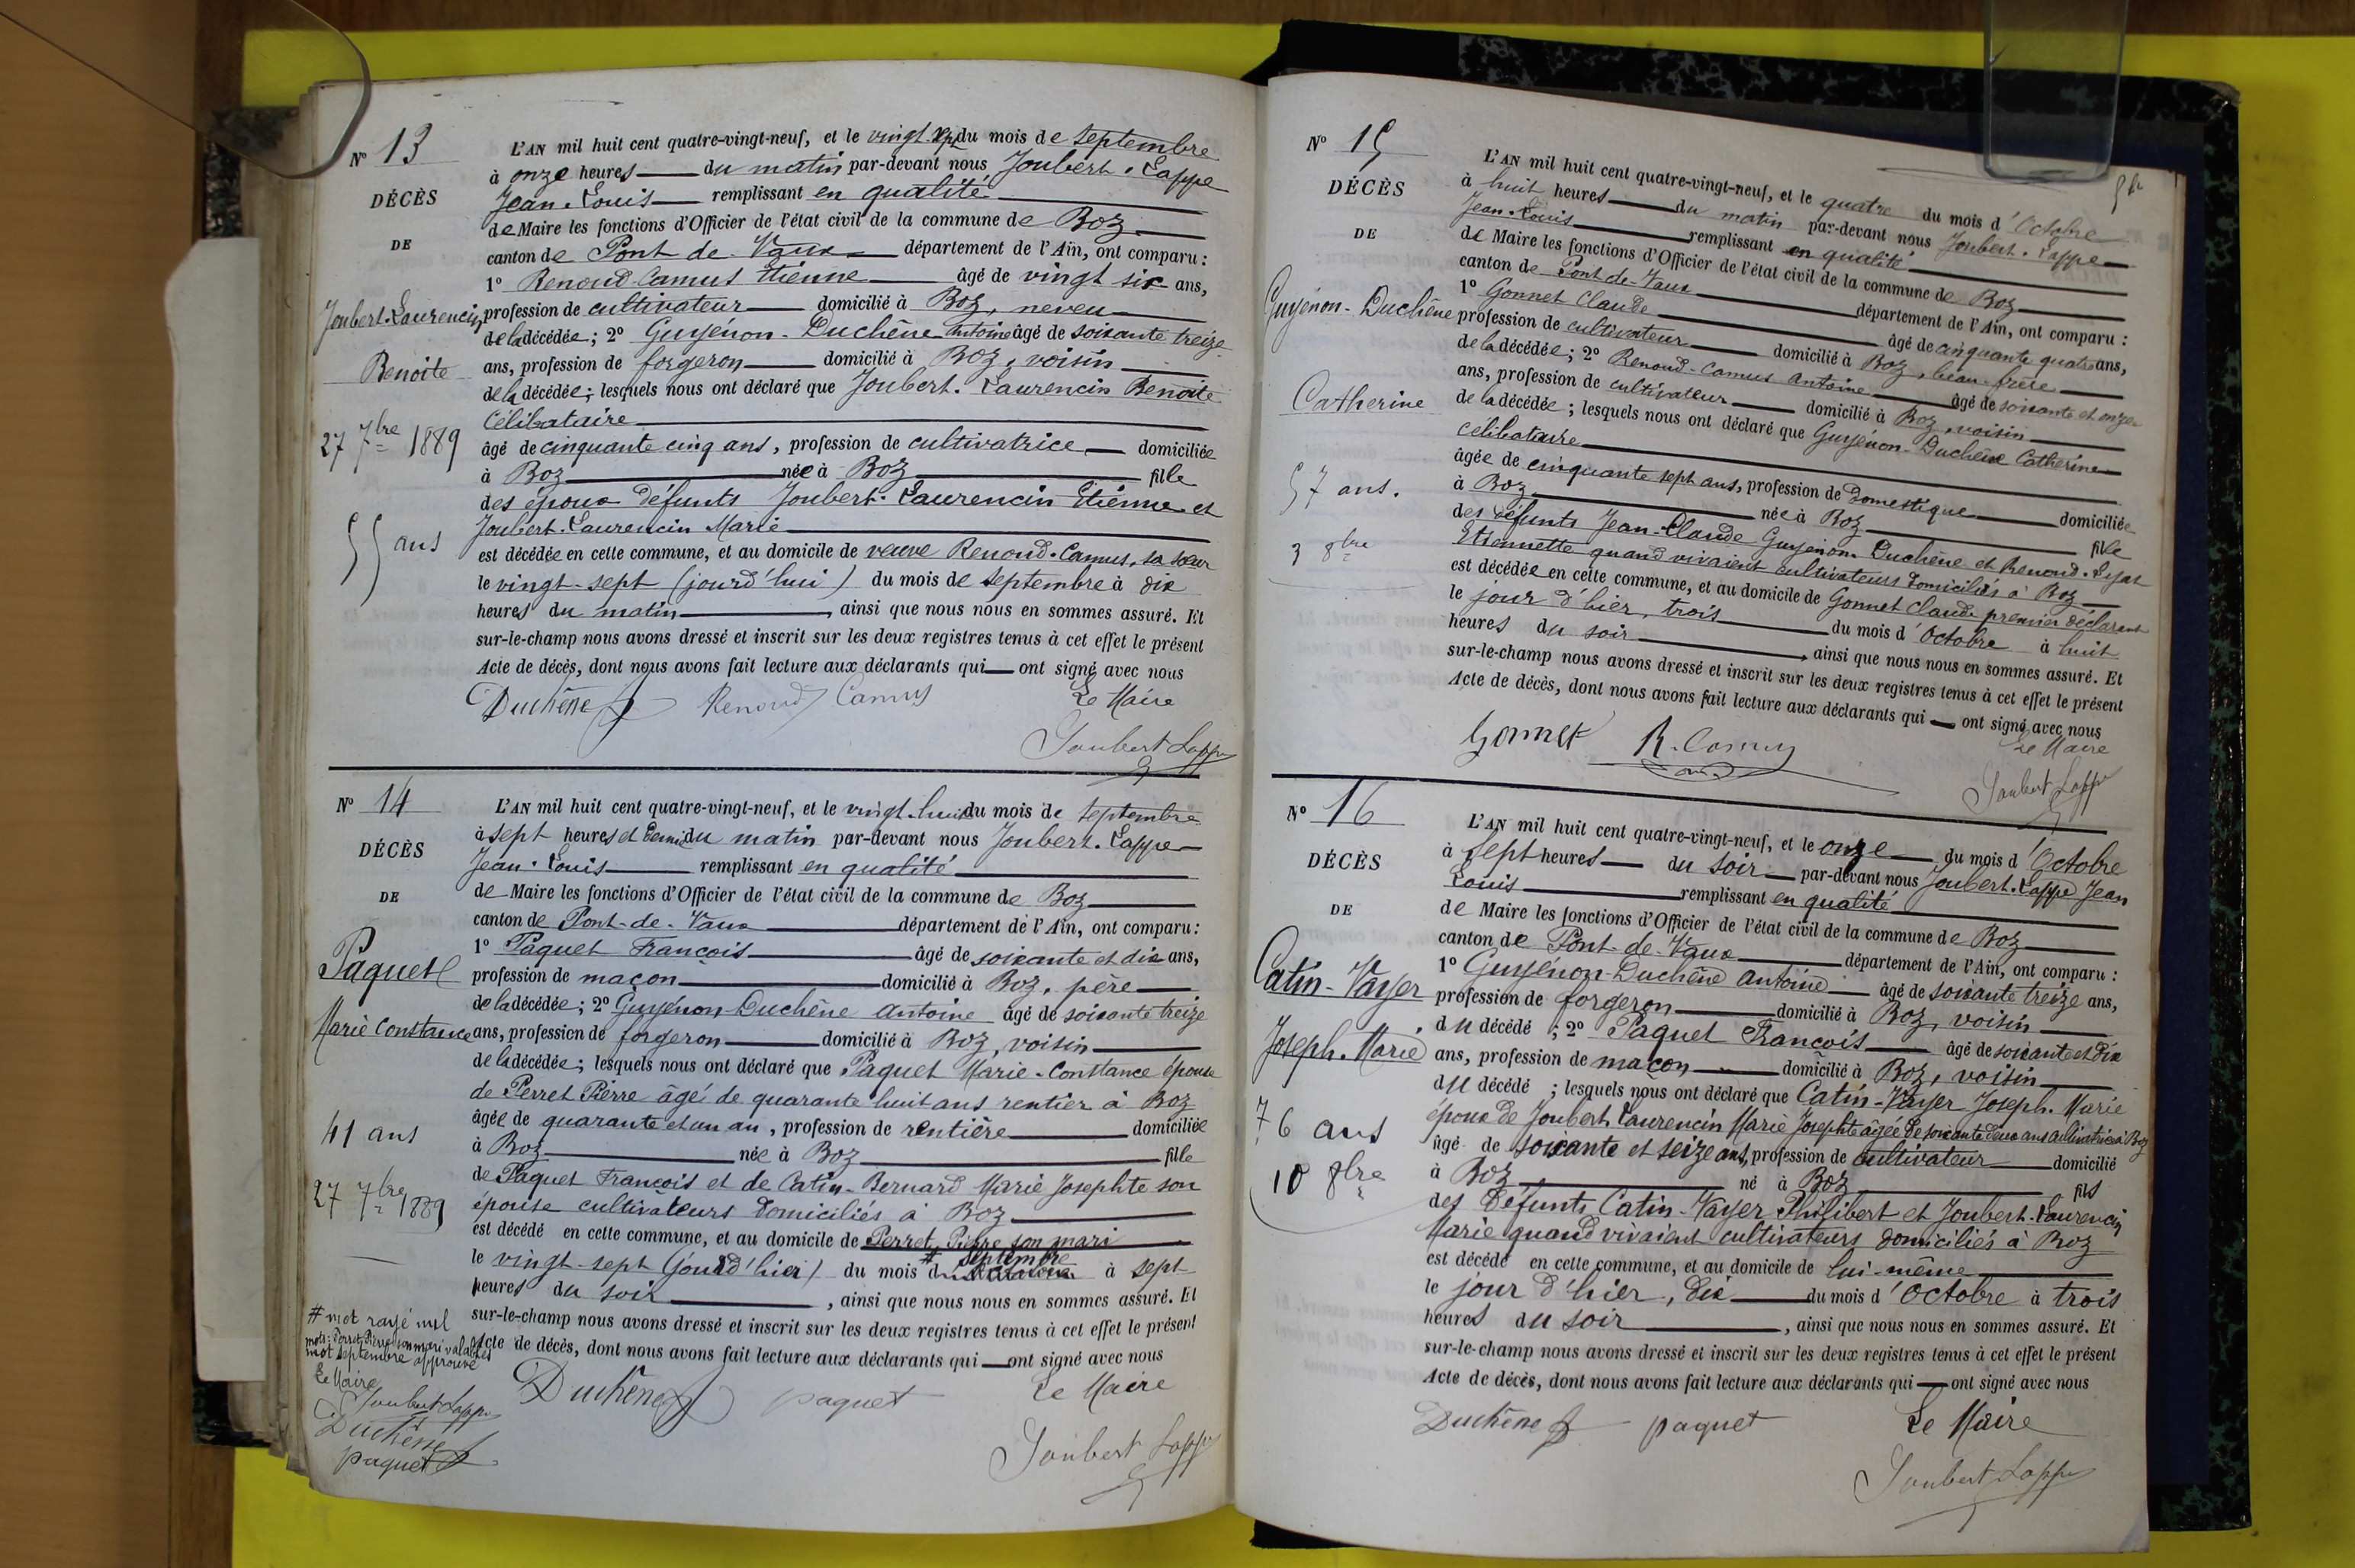 Nº 13
DÉCÈS
DE
Joubert-Laurencin
Benoite
27 7bre 1889
55 ans
L'AN mil huit cent quatre-vingt-neuf, et le vingt sept du mois de septembre
à onze heures du matin par-devant nous Joubert-Lappe
Jean-Louis remplissant en qualité
de Maire les fonctions d'Officier de l'état civil de la commune de Boz
canton de Pont de Vaux département de l'Ain, ont comparu :
1º Renoud Camus Etienne âgé de vingt six ans,
profession de cultivateur domicilié à Boz, neveu
de la décédée ; 2º Guyénon-Duchêne Antoine âgé de soixante treize
ans, profession de forgeron domicilié à Boz, voisin
de la décédée ; lesquels nous ont déclaré que Joubert-Laurencin Benoite
Célibataire
âgé de cinquante cinq ans, profession de cultivatrice domiciliée
à Boz née à Boz fille
des époux défunts Joubert-Laurencin Etienne et
Joubert-Laurencin Marie
est décédée en cette commune, et au domicile de veuve Renoud-Camus, sa sœur
le vingt-sept (jourd'hui) du mois de septembre à dix
heures du matin, ainsi que nous nous en sommes assuré. Et
sur-le-champ nous avons dressé et inscrit sur les deux registres tenus à cet effet le présent
Acte de décès, dont nous avons fait lecture aux déclarants qui ont signé avec nous
Duchêne Renoud Camus Le Maire
Joubert Lappe
Nº 14
DÉCÈS
DE
Paquet
Marie Constance
41 ans
27 7bre 1889
L'AN mil huit cent quatre-vingt-neuf, et le vingt-huit du mois de septembre
à sept heures et demi du matin par-devant nous Joubert-Lappe
Jean-Louis remplissant en qualité
de Maire les fonctions d'Officier de l'état civil de la commune de Boz
canton de Pont-de-Vaux département de l'Ain, ont comparu :
1º Paquet François âgé de soixante et dix ans,
profession de maçon domicilié à Boz, père
de la décédée ; 2º Guyénon-Duchêne Antoine âgé de soixante treize
ans, profession de forgeron domicilié à Boz, voisin
de la décédée ; lesquels nous ont déclaré que Paquet Marie-Constance épouse
de Perret Pierre âgé de quarante huit ans rentier à Boz
âgée de quarante et un an, profession de rentière domiciliée
à Boz née à Boz fille
de Paquet François et de Catin-Bernard Marie Josephte son
épouse cultivateurs domiciliés à Boz
est décédé en cette commune, et au domicile de Perret Pierre son mari
# septembre
le vingt-sept (jourd'hier) du mois d' à sept
heures du soir, ainsi que nous nous en sommes assuré. Et
sur-le-champ nous avons dressé et inscrit sur les deux registres tenus à cet effet le présent
Acte de décès, dont nous avons fait lecture aux déclarants qui ont signé avec nous
Duchêne paquet Le Maire
Joubert Lappe
# mot rayé nul
mots : Perret Pierre son mari valables
mot septembre approuvé
Le Maire
Joubert Lappe
Duchêne
paquet
Nº 15
DÉCÈS
DE
Guyénon-Duchêne
Catherine
57 ans.
3 8bre
L'AN mil huit cent quatre-vingt-neuf, et le quatre du mois d'Octobre
à huit heures du matin par-devant nous Joubert-Lappe
Jean-Louis remplissant en qualité
de Maire les fonctions d'Officier de l'état civil de la commune de Boz
canton de Pont-de-Vaux département de l'Ain, ont comparu :
1º Gonnet Claude âgé de cinquante quatre ans,
profession de cultivateur domicilié à Boz, beau-frère
de la décédée ; 2º Renoud-Camus Antoine âgé de soixante et onze
ans, profession de cultivateur domicilié à Boz, voisin
de la décédée ; lesquels nous ont déclaré que Guyénon-Duchêne Catherine
célibataire
âgée de cinquante sept ans, profession de domestique domiciliée
à Boz née à Boz fille
des défunts Jean-Claude Guyénon-Duchêne et Renoud-Lyat
Etiennette quand vivaient cultivateurs domiciliés à Boz
est décédée en cette commune, et au domicile de Gonnet Claude premier déclarant
le jour d'hier, trois du mois d'Octobre à huit
heures du soir, ainsi que nous nous en sommes assuré. Et
sur-le-champ nous avons dressé et inscrit sur les deux registres tenus à cet effet le présent
Acte de décès, dont nous avons fait lecture aux déclarants qui ont signé avec nous
Gonnet R. Camus Le Maire
Joubert Lappe
Nº 16
DÉCÈS
DE
Catin-Vayer
Joseph-Marie
76 ans
10 8bre
L'AN mil huit cent quatre-vingt-neuf, et le onze du mois d'Octobre
à sept heures du soir par-devant nous Joubert-Lappe Jean
Louis remplissant en qualité
de Maire les fonctions d'Officier de l'état civil de la commune de Boz
canton de Pont-de-Vaux département de l'Ain, ont comparu :
1º Guyénon-Duchêne Antoine âgé de soixante treize ans,
profession de forgeron domicilié à Boz, voisin
du décédé ; 2º Paquet François âgé de soixante et dix
ans, profession de maçon domicilié à Boz, voisin
du décédé ; lesquels nous ont déclaré que Catin-Vayer Joseph-Marie
époux de Joubert Laurencin Marie Josephte âgée de soixante deux ans cultivatrice à Boz
âgé de soixante et seize ans, profession de cultivateur domicilié
à Boz né à Boz fils
des défunts Catin-Vayer Philibert et Joubert-Laurencin
Marie quand vivaient cultivateurs domiciliés à Boz
est décédé en cette commune, et au domicile de lui-même
le jour d'hier, dix du mois d'Octobre à trois
heures du soir, ainsi que nous nous en sommes assuré. Et
sur-le-champ nous avons dressé et inscrit sur les deux registres tenus à cet effet le présent
Acte de décès, dont nous avons fait lecture aux déclarants qui ont signé avec nous
Duchêne paquet Le Maire
Joubert Lappe